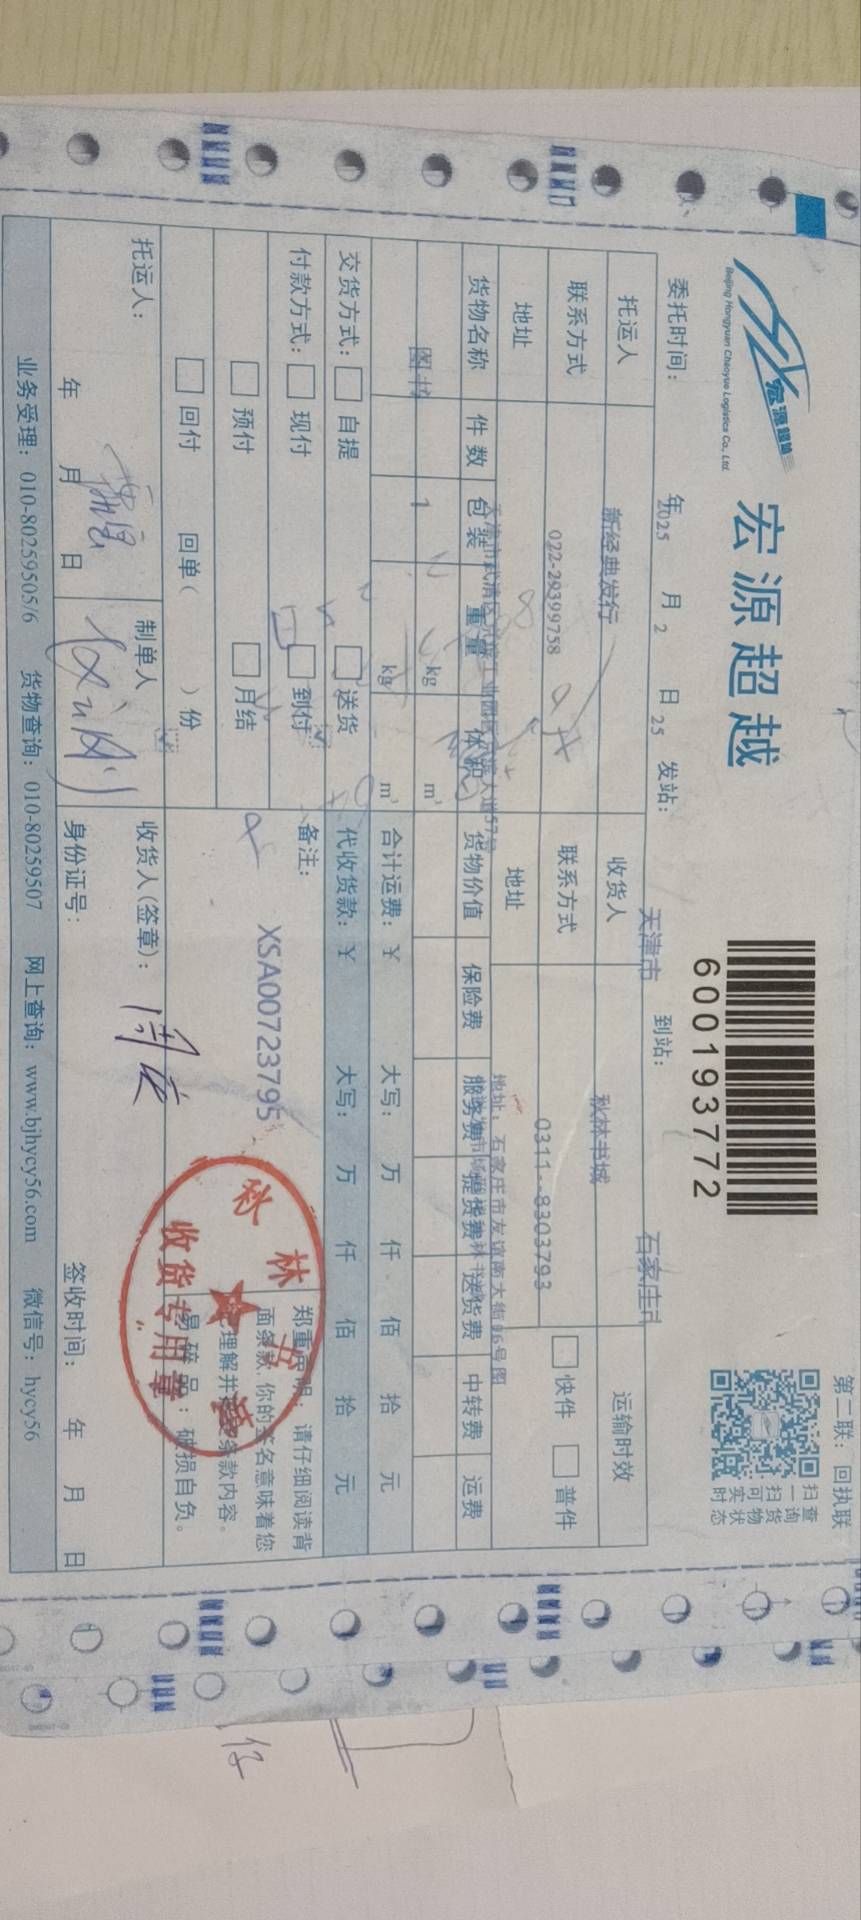 第二联：回执联
宏源超越
Beijing Hongyuan Chaoyue Logistics Co., Ltd.
宏源超越
6001193772
扫一扫 可实时
查询货物状态
委托时间： 2025 年 2 月 25 日 发站： 天津市 到站： 石家庄市
托运人 新经典发行 收货人 秋林书城 运输时效
联系方式 022-29399758 联系方式 0311--8303793 快件 普件
地址 天津市武清区 地址 地址：石家庄市友谊南大街
货物名称 件数 包装 重量 体积 货物价值 保险费 服务费 提货费 送货费 中转费 运费
图书 1 kg m³
kg m³ 合计运费：¥ 大写： 万 仟 佰 拾 元
交货方式： 自提 送货 代收货款：¥ 大写： 万 仟 佰 拾 元
付款方式： 现付 到付 备注：
预付 月结 XSA00723795
回付 回单（ ）份
郑重声明：请仔细阅读背
面条款，你的签名意味着您
理解并 条款内容。
易碎品：破损自负。
秋林书城
收货专用章
托运人： 制单人 收货人(签章)：
年 月 日 身份证号： 签收时间： 年 月 日
业务受理：010-80259505/6 货物查询：010-80259507 网上查询：www.bjhycy56.com 微信号：hycy56